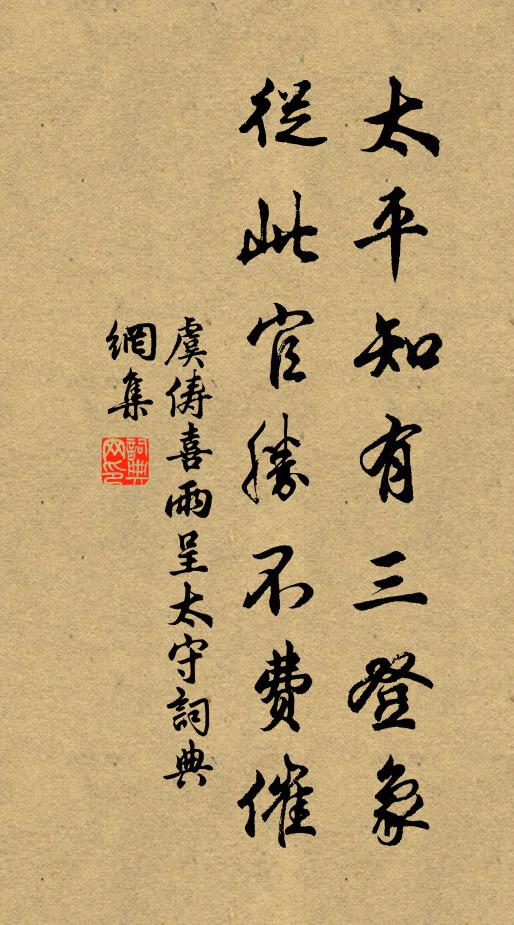 太平知有三登象
從此官勝不費催
虞儔喜雨呈太守詞典
網集
詞典網印